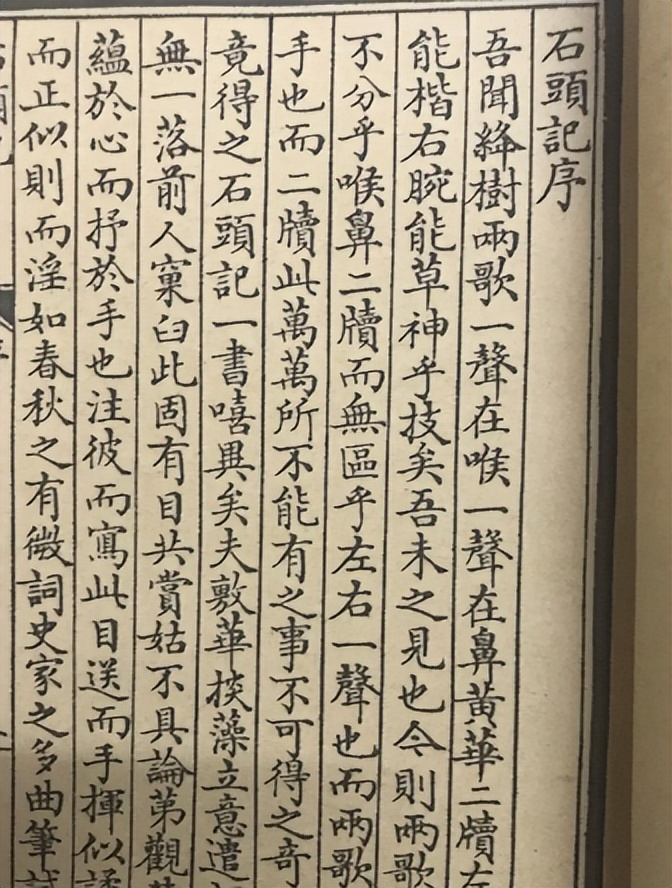 石頭記序
吾聞絳樹兩歌一聲在喉一聲在鼻黃華二牘左
能楷右腕能草神乎技矣吾未之見也今則兩歌
不分乎喉鼻二牘而無區乎左右一聲也而兩歌
手也而二牘此萬萬所不能有之事不可得之奇
竟得之石頭記一書嘻異矣夫敷華掞藻立意遣
無一落前人窠臼此固有目共賞姑不具論第觀
蘊於心而抒於手也注彼而寫此目送而手揮似譎
而正似則而淫如春秋之有微詞史家之多曲筆試